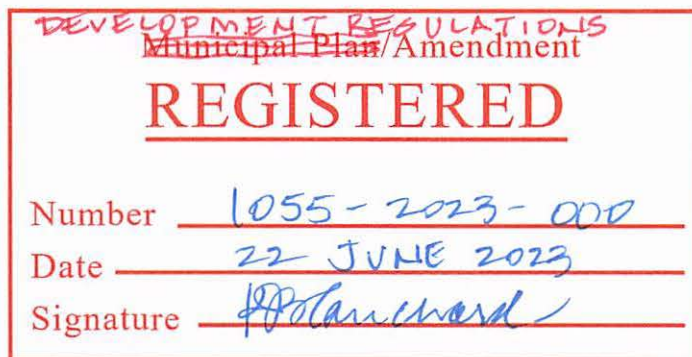 DEVELOPMENT REGULATIONS
Municipal Plan/Amendment
REGISTERED
Number 1055-2023-000
Date 22 JUNE 2023
Signature